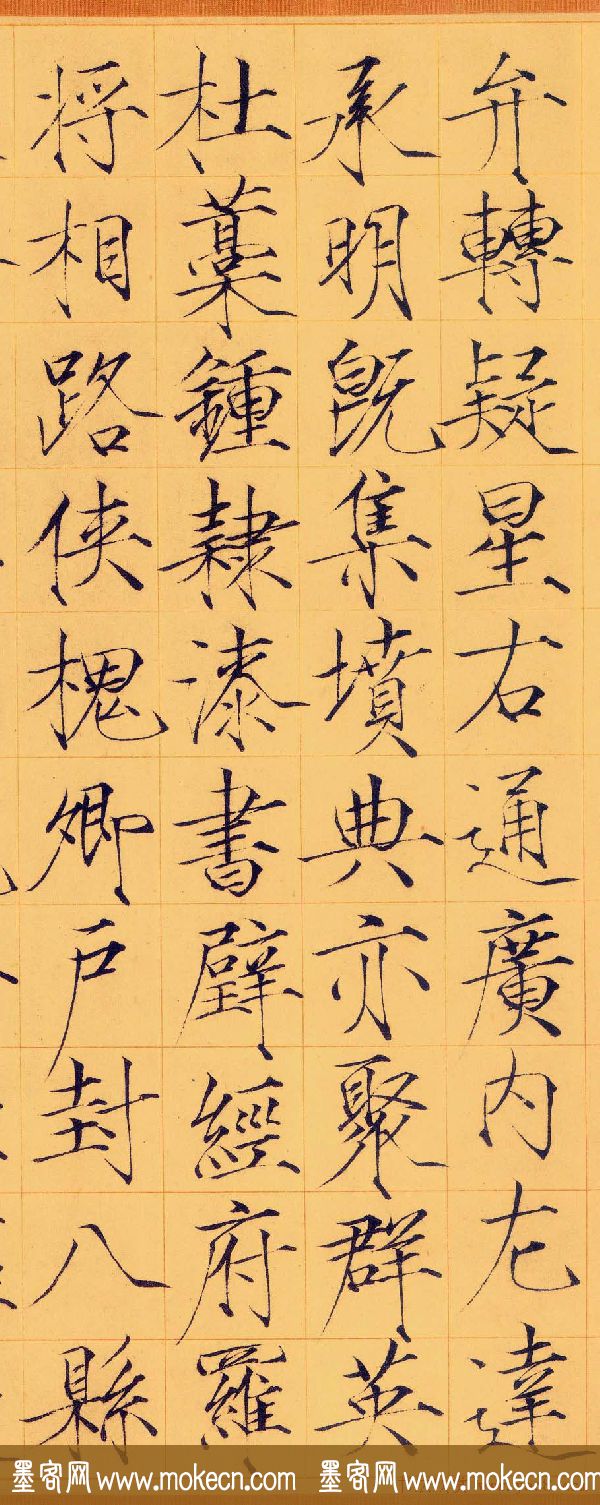 弁轉疑星右通廣内左達
承明既集墳典亦聚群英
杜藁鍾隸漆書壁經府羅
将相路侠槐卿户封八縣
墨客网 www.mokecn.com 墨客网 www.mokecn.com